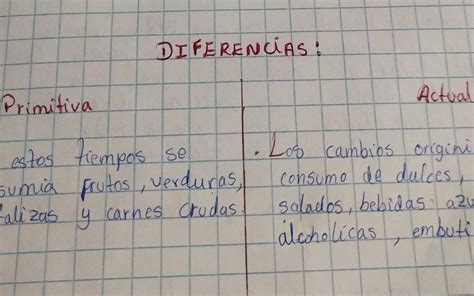 DIFERENCIAS:
Primitiva
estos tiempos se
sumia frutos, verduras,
talizas y carnes crudas.
Actual
. Los cambios origini
consumo de dulces,
salados, bebidas azu
alcoholicas, embuti